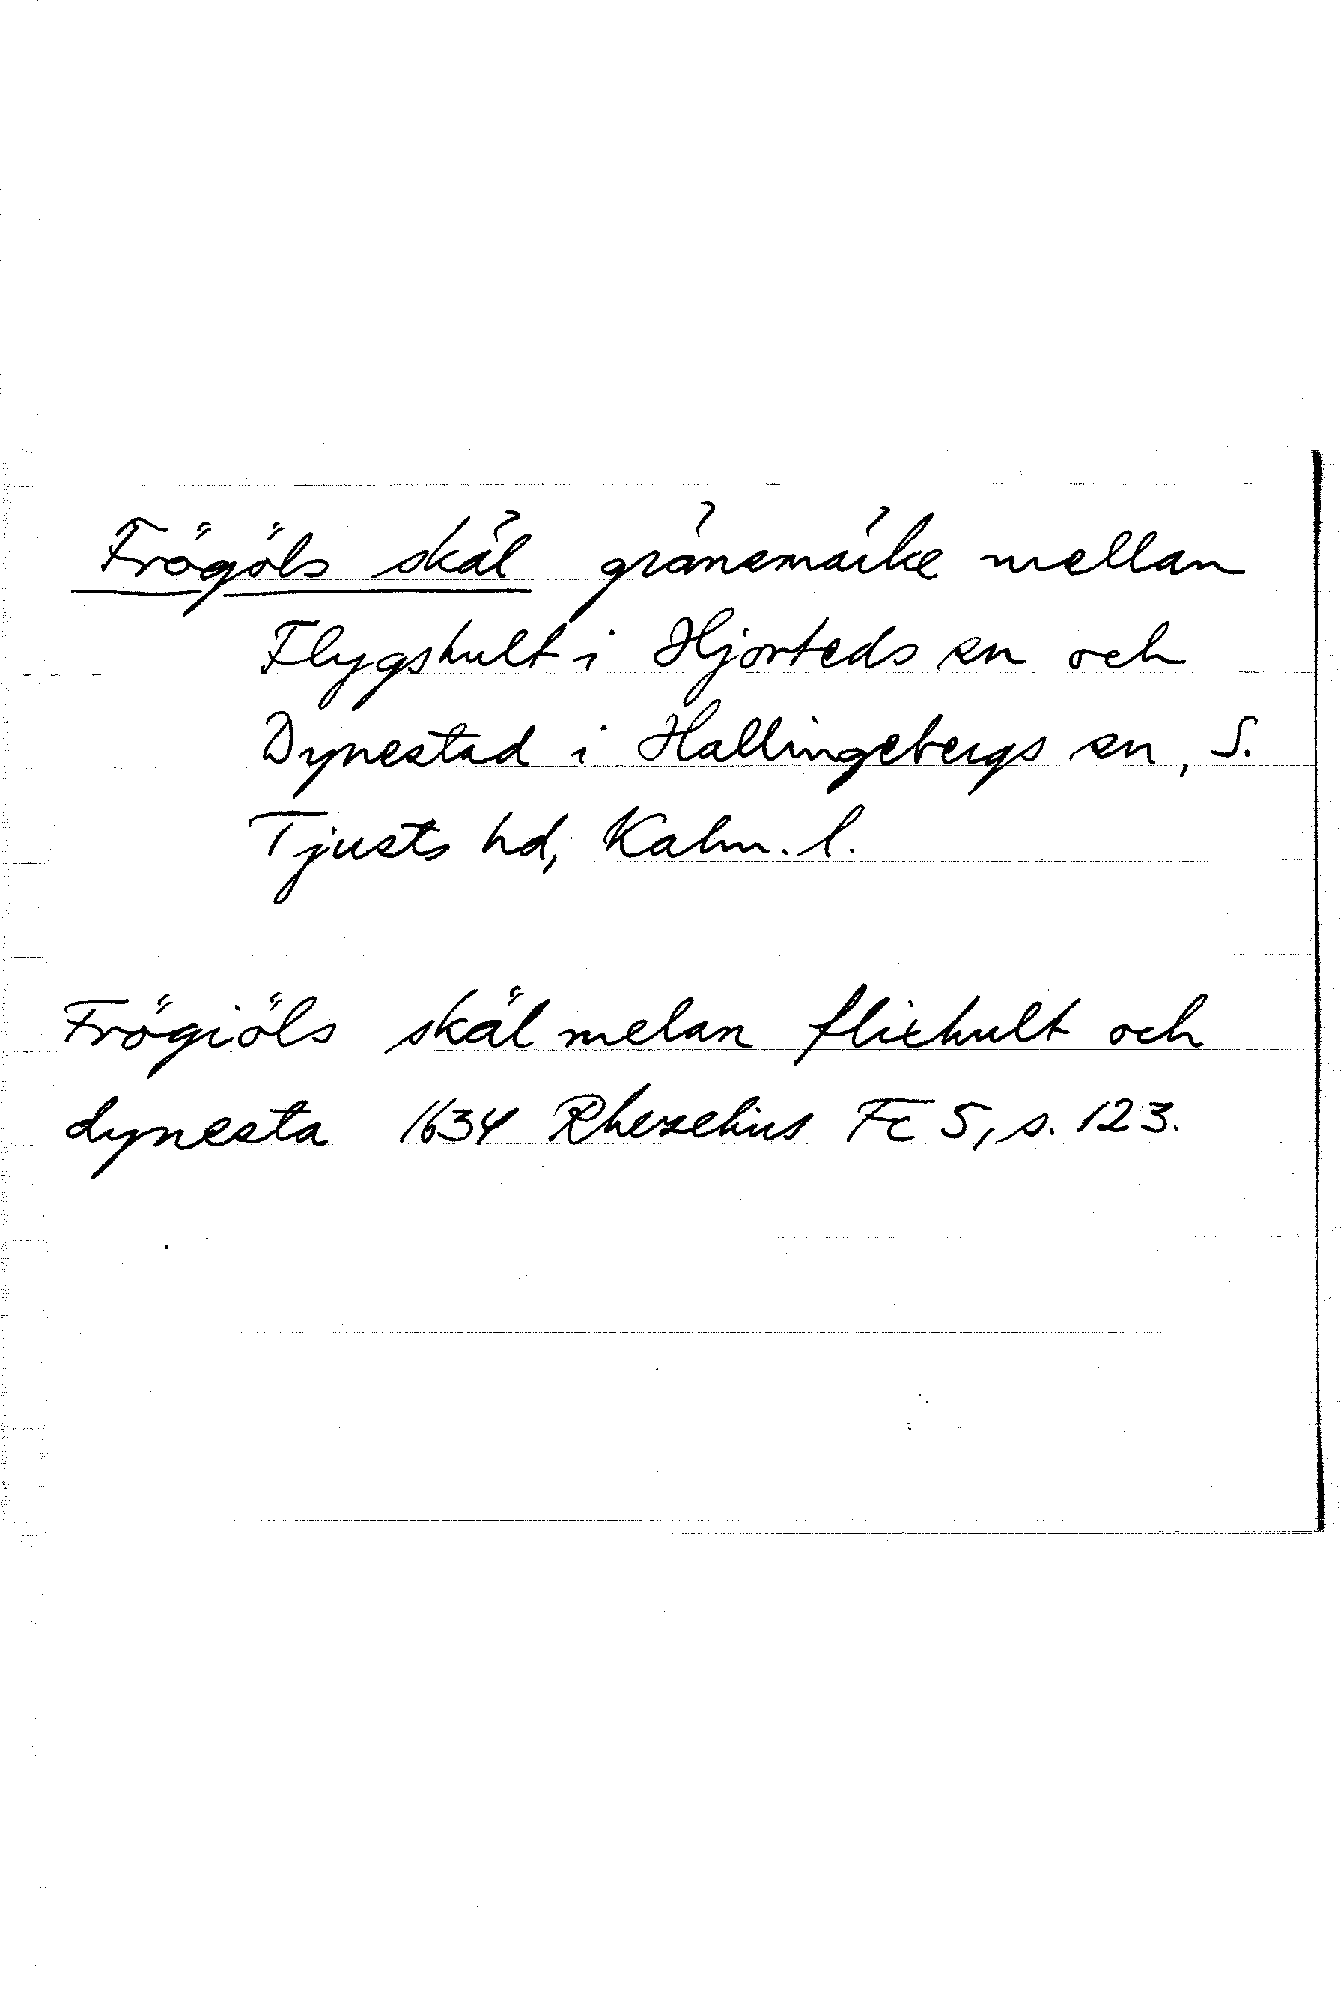 Frögöls skäl gränsmärke mellan
Flygshult i Hjorteds sn och
Dynestad i Hallingebergs sn, S.
Tjusts hd, Kalm. l.
Frögiöls skäl melan flixhult och
dynesta 1634 Rhezelius Fc 5, s. 123.